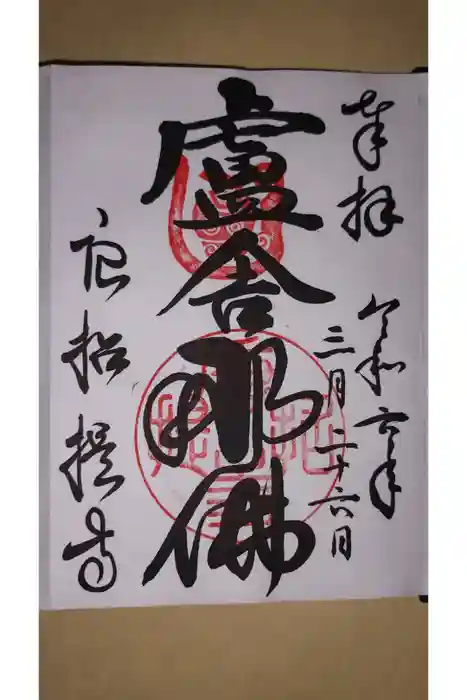 奉拝
令和六年
三月二十六日
盧舎那佛
唐招提寺